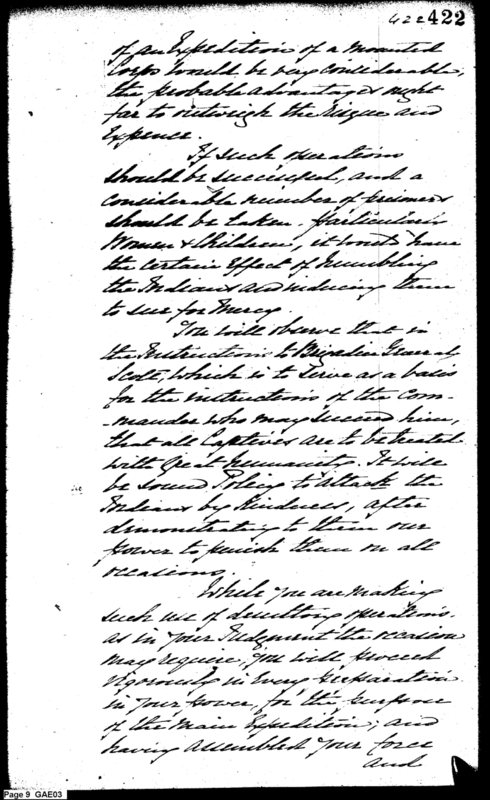 422 422
of an Expedition of a mounted
Corps would be very considerable,
the probable advantages might
far to outweigh the risque and
Expence.
If such operations
should be successful, and a
considerable number of prisoners
should be taken, particularly
Women & Children, it would have
the certain Effect of humbling
the Indians and inducing them
to sue for Mercy.
You will observe that in
the Instructions to Brigadier General
Scott, which is to serve as a basis
for the instructions of the Com-
-mander who may succeed him,
that all Captives are to be treated
with great humanity. It will
be sound Policy to attach the
Indians by kindness, after
demonstrating to them our
power to punish them on all
occasions.
While you are making
such use of desultory operations
as in your Judgment the occasion
may require, you will proceed
vigorously in every preparation
in your power, for the purpose
of the main Expedition; and
having assembled your force
and
Page 9 GAE03